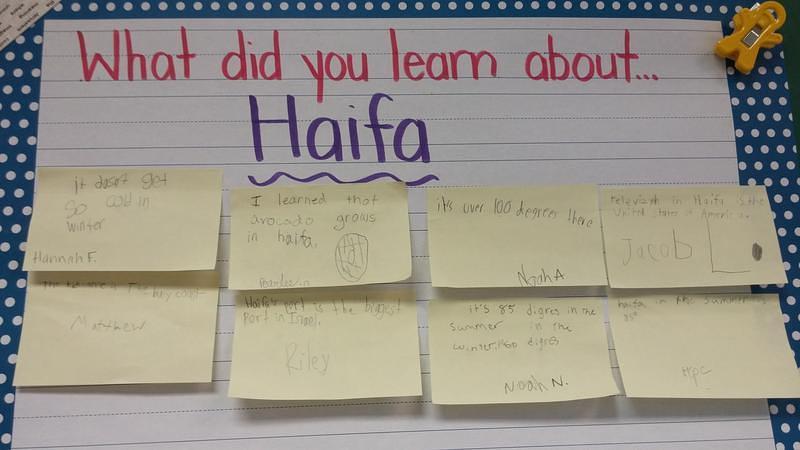 What did you learn about...
Haifa
it dosn't get
So cold in
winter
Hannah F.
I learned that
avocado grows
in haifa.
it's over 100 degrees there
Noah A
in Haifa is the
United states of America
Jacob
Matthew
Haifa's port is the biggest
Port in Israel.
Riley
it's 85 digres in the
summer in the
winter, 60 digres
Noah N.
haifa in the summer is
85°